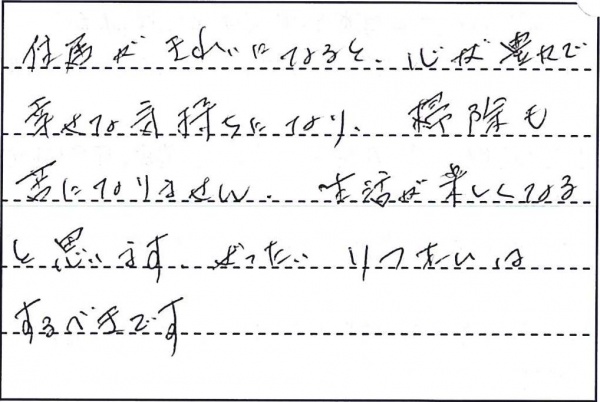 住居がきれいになると、心が豊かで
幸せな気持ちになり、掃除も
苦になりません。生活が楽しくなる
と思います。ぜったいリフォームは
するべきです